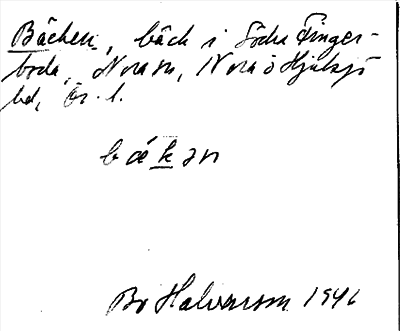 Bäcken, bäck i Södra Finger-
boda, Nora sn, Nora o Hjulsjö
bd, Ör. l.
bækən
Bo Halvarson 1946